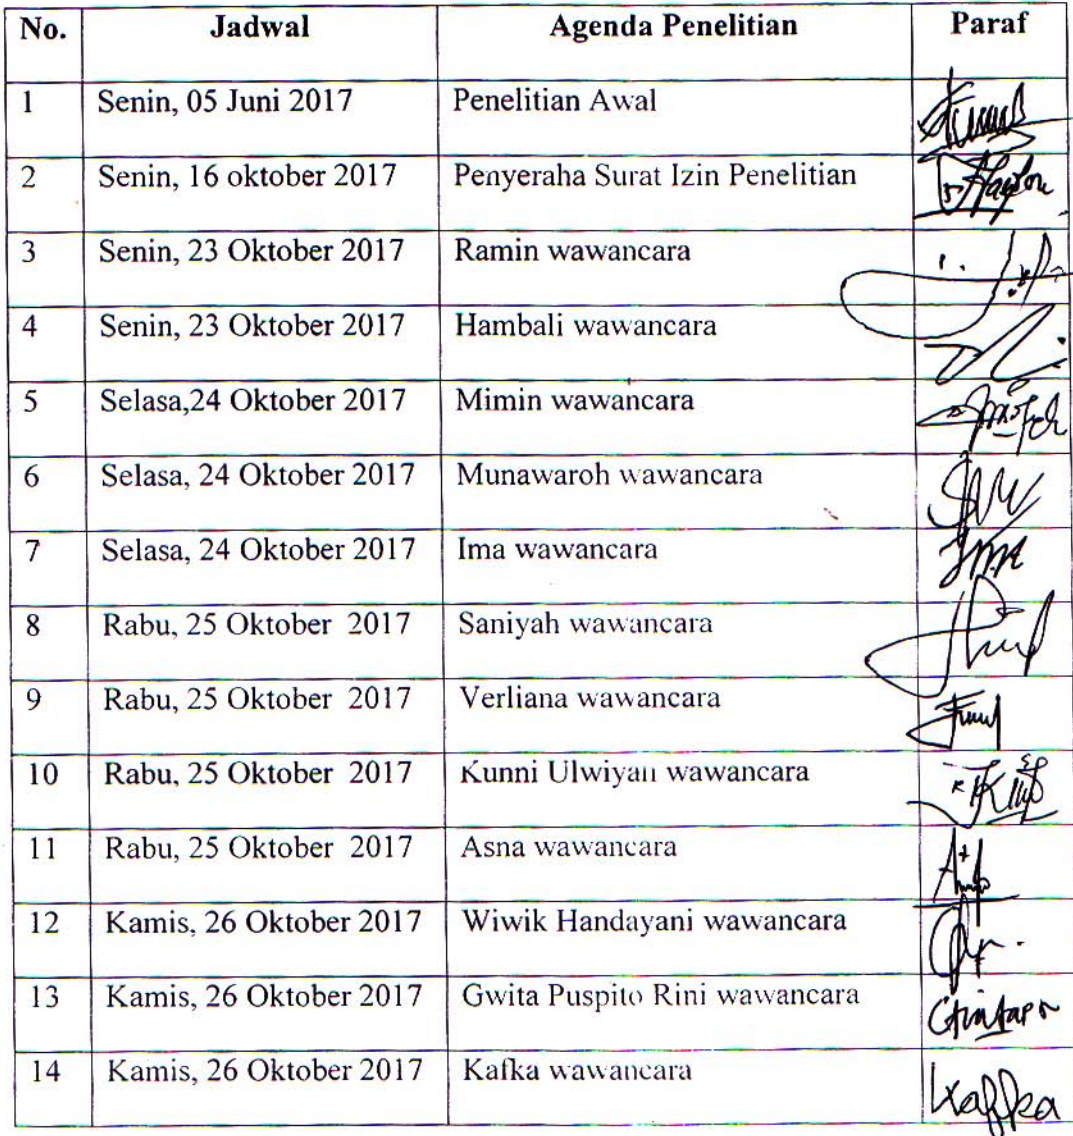 No. Jadwal Agenda Penelitian Paraf
1 Senin, 05 Juni 2017 Penelitian Awal
2 Senin, 16 oktober 2017 Penyeraha Surat Izin Penelitian
3 Senin, 23 Oktober 2017 Ramin wawancara
4 Senin, 23 Oktober 2017 Hambali wawancara
5 Selasa,24 Oktober 2017 Mimin wawancara
6 Selasa, 24 Oktober 2017 Munawaroh wawancara
7 Selasa, 24 Oktober 2017 Ima wawancara
8 Rabu, 25 Oktober 2017 Saniyah wawancara
9 Rabu, 25 Oktober 2017 Verliana wawancara
10 Rabu, 25 Oktober 2017 Kunni Ulwiyah wawancara
11 Rabu, 25 Oktober 2017 Asna wawancara
12 Kamis, 26 Oktober 2017 Wiwik Handayani wawancara
13 Kamis, 26 Oktober 2017 Gwita Puspito Rini wawancara
14 Kamis, 26 Oktober 2017 Kafka wawancara Kaffka